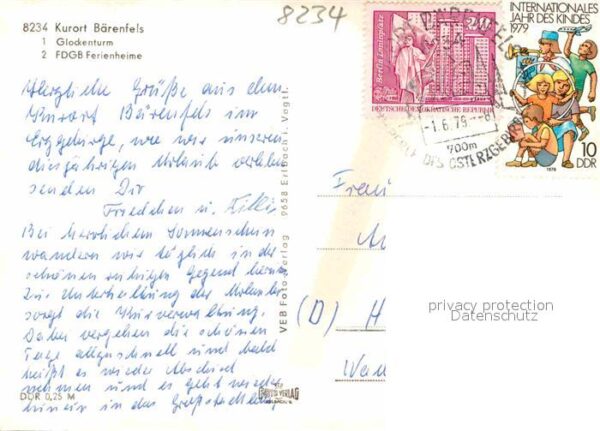 8234
8234 Kurort Bärenfels
1 Glockenturm
2 FDGB Ferienheime
Herzliche Grüße aus dem
Kurort Bärenfels im
Erzgebirge, wo wir unseren
diesjährigen Urlaub verleben
senden Dir
Friedchen u. Willi
Bei herrlichem Sonnenschein
wandern wir täglich in der
schönen ruhigen Gegend herum.
Zur Unterhaltung der Urlauber
sorgt die Kurverwaltung.
Daher vergehen die schönen
Tage allzuschnell und bald
heißt es wieder Abschied
nehmen und es geht wieder
hinein in das
DDR 0,25 M
VEB Foto-Verlag 9658 Erlbach i. Vogtl.
Berlin, Leninplatz
20
DEUTSCHE DEMOKRATISCHE REPUBLIK
-1.6.79
700m
DES OSTERZGEBIRGES
INTERNATIONALES
JAHR DES KINDES
1979
10
DDR
1979
Frau
(D) H
privacy protection
Datenschutz